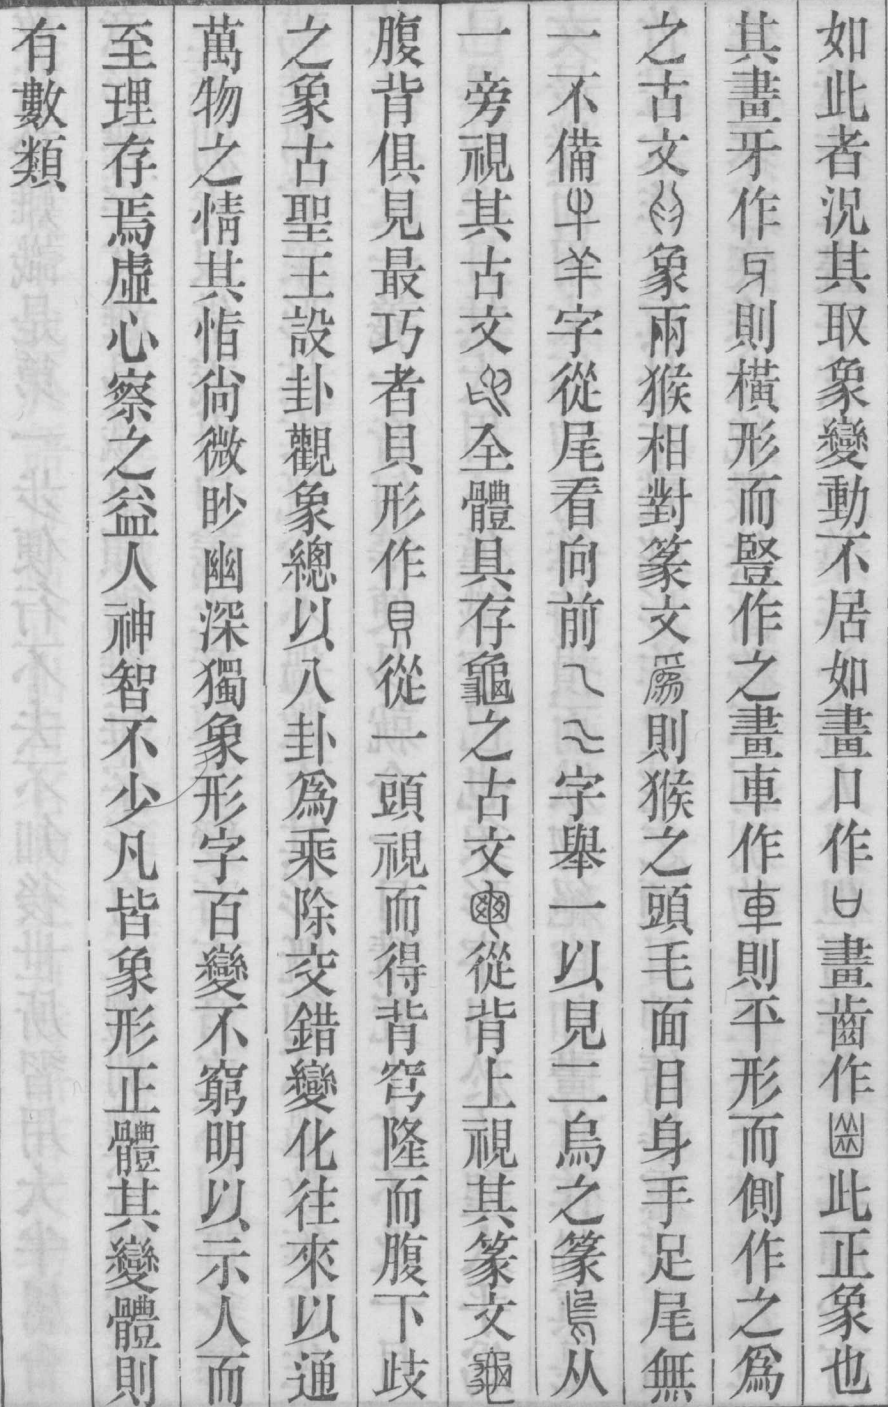 如此者況其取象變動不居如畫口作口畫齒作齒此正象也
其畫牙作牙則橫形而豎作之畫車作車則平形而側作之爲
之古文象兩猴相對篆文爲則猴之頭毛面目身手足尾無
一不備牛羊字從尾看向前字舉一以見二烏之篆烏从
一旁視其古文全體具存龜之古文從背上視其篆文龜
腹背俱見最巧者貝形作貝從一頭視而得背穹隆而腹下歧
之象古聖王設卦觀象總以八卦爲乘除交錯變化往來以通
萬物之情其恉尙微眇幽深獨象形字百變不窮明以示人而
至理存焉虛心察之益人神智不少凡皆象形正體其變體則
有數類